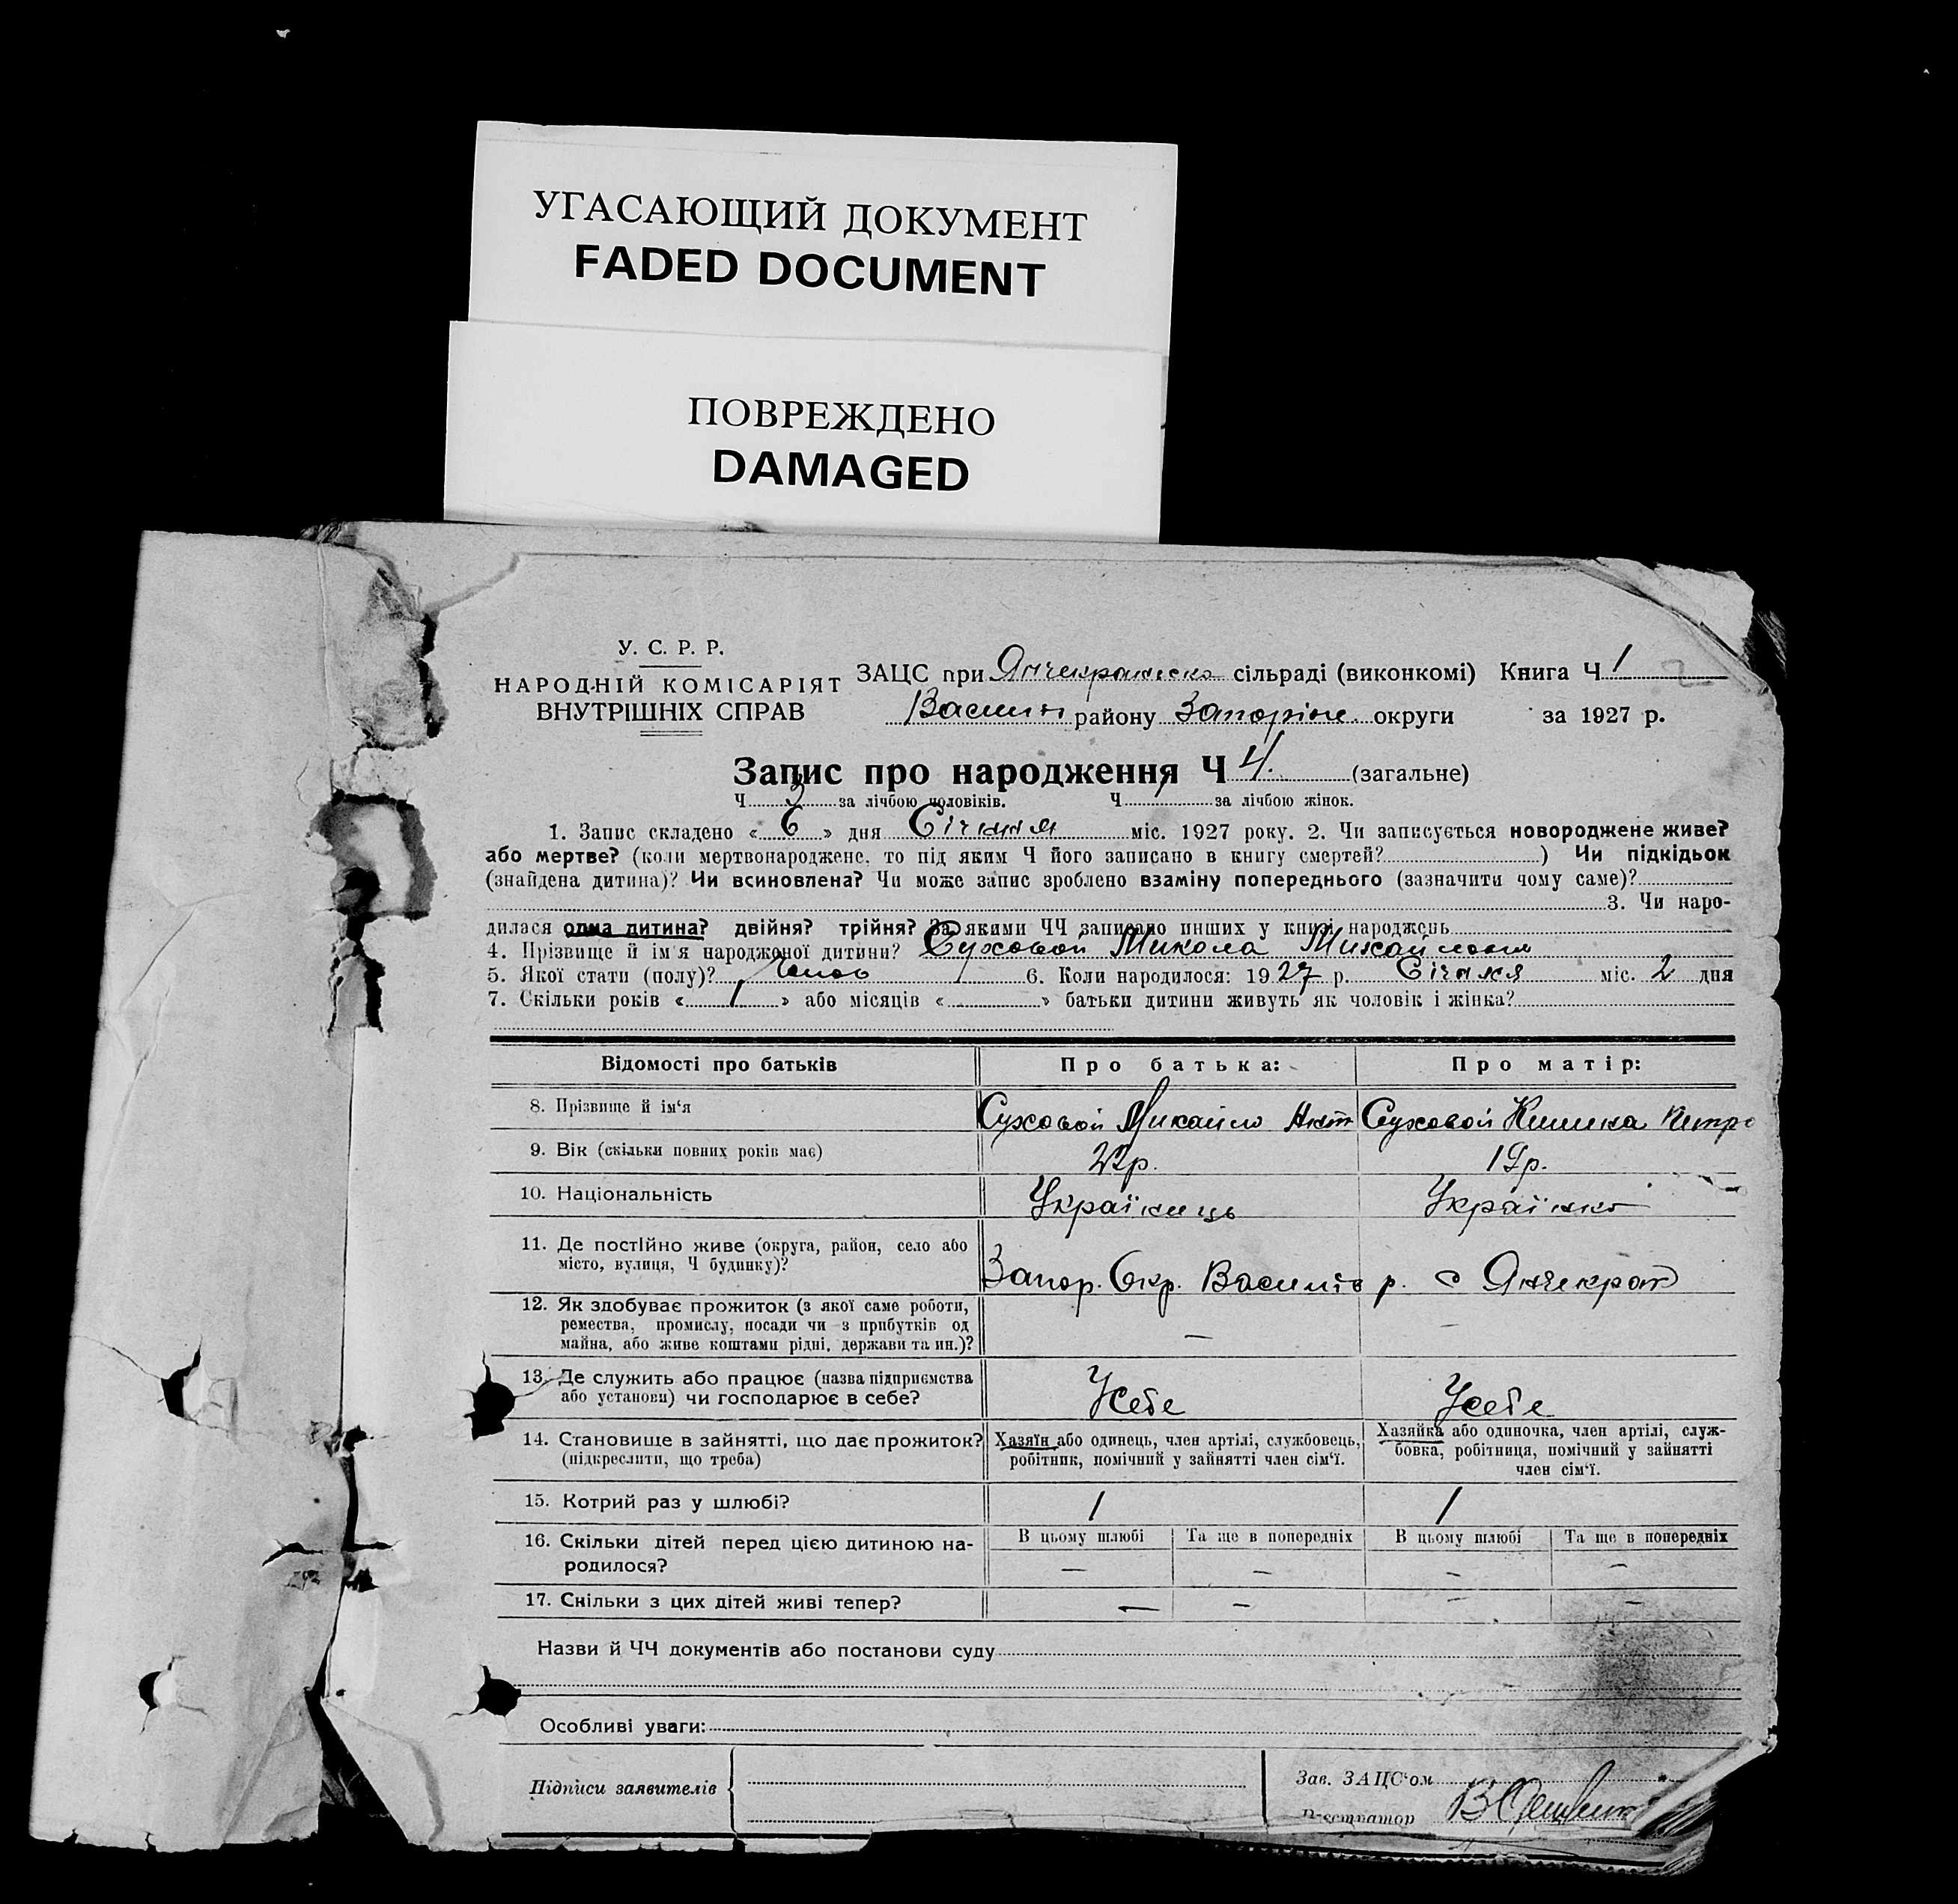 УГАСАЮЩИЙ ДОКУМЕНТ
FADED DOCUMENT
ПОВРЕЖДЕНО
DAMAGED
У. С. Р. Р.
НАРОДНІЙ КОМІСАРІЯТ
ВНУТРІШНІХ СПРАВ
ЗАЦС при Янчекракско сільраді (виконкомі) Книга Ч 1
району Запоріж. округи за 1927 р.
Запис про народження Ч 4. (загальне)
Ч 3 за лічбою чоловіків. Ч за лічбою жінок.
1. Запис складено « 6 » дня Січння міс. 1927 року. 2. Чи записується новороджене живе?
або мертве? (коли мертвонароджене, то під яким Ч його записано в книгу смертей? ) Чи підкідьок
(знайдена дитина)? Чи всиновлена? Чи може запис зроблено взаміну попереднього (зазначити чому саме)?
3. Чи наро-
дилася одна дитина? двійня? трійня? За якими ЧЧ записано инших у книзі народжень
4. Прізвище й ім'я народженої дитини? Суховой Микола
5. Якої стати (полу)? 6. Коли народилося: 1927 р. Січня міс. 2 дня
7. Скільки років « 1 » або місяців « » батьки дитини живуть як чоловік і жінка?
Відомості про батьків Про батька: Про матір:
8. Прізвище й ім'я Суховой Михайло Суховой
9. Вік (скільки повних років має) 22р. 19р.
10. Національність Українець Українка
11. Де постійно живе (округа, район, село або
місто, вулиця, Ч будинку)? Запор. Окр. Василів р. с Янчекрак
12. Як здобуває прожиток (з якої саме роботи,
ремества, промислу, посади чи з прибутків од
майна, або живе коштами рідні, держави та ин.)? — —
13. Де служить або працює (назва підприємства
або установи) чи господарює в себе? Усебе Усебе
14. Становище в зайнятті, що дає прожиток?
(підкреслити, що треба)
Хазяїн або одинець, член артілі, службовець,
робітник, помічний у зайнятті член сім'ї.
Хазяйка або одиночка, член артілі, служ-
бовка, робітниця, помічний у зайнятті
член сім'ї.
15. Котрий раз у шлюбі? 1 1
16. Скільки дітей перед цією дитиною на-
родилося?
В цьому шлюбі Та ще в попередніх В цьому шлюбі Та ще в попередніх
— — — —
17. Скільки з цих дітей живі тепер? — — — —
Назви й ЧЧ документів або постанови суду
Особливі уваги:
Підписи заявителів
Зав. ЗАЦС'ом